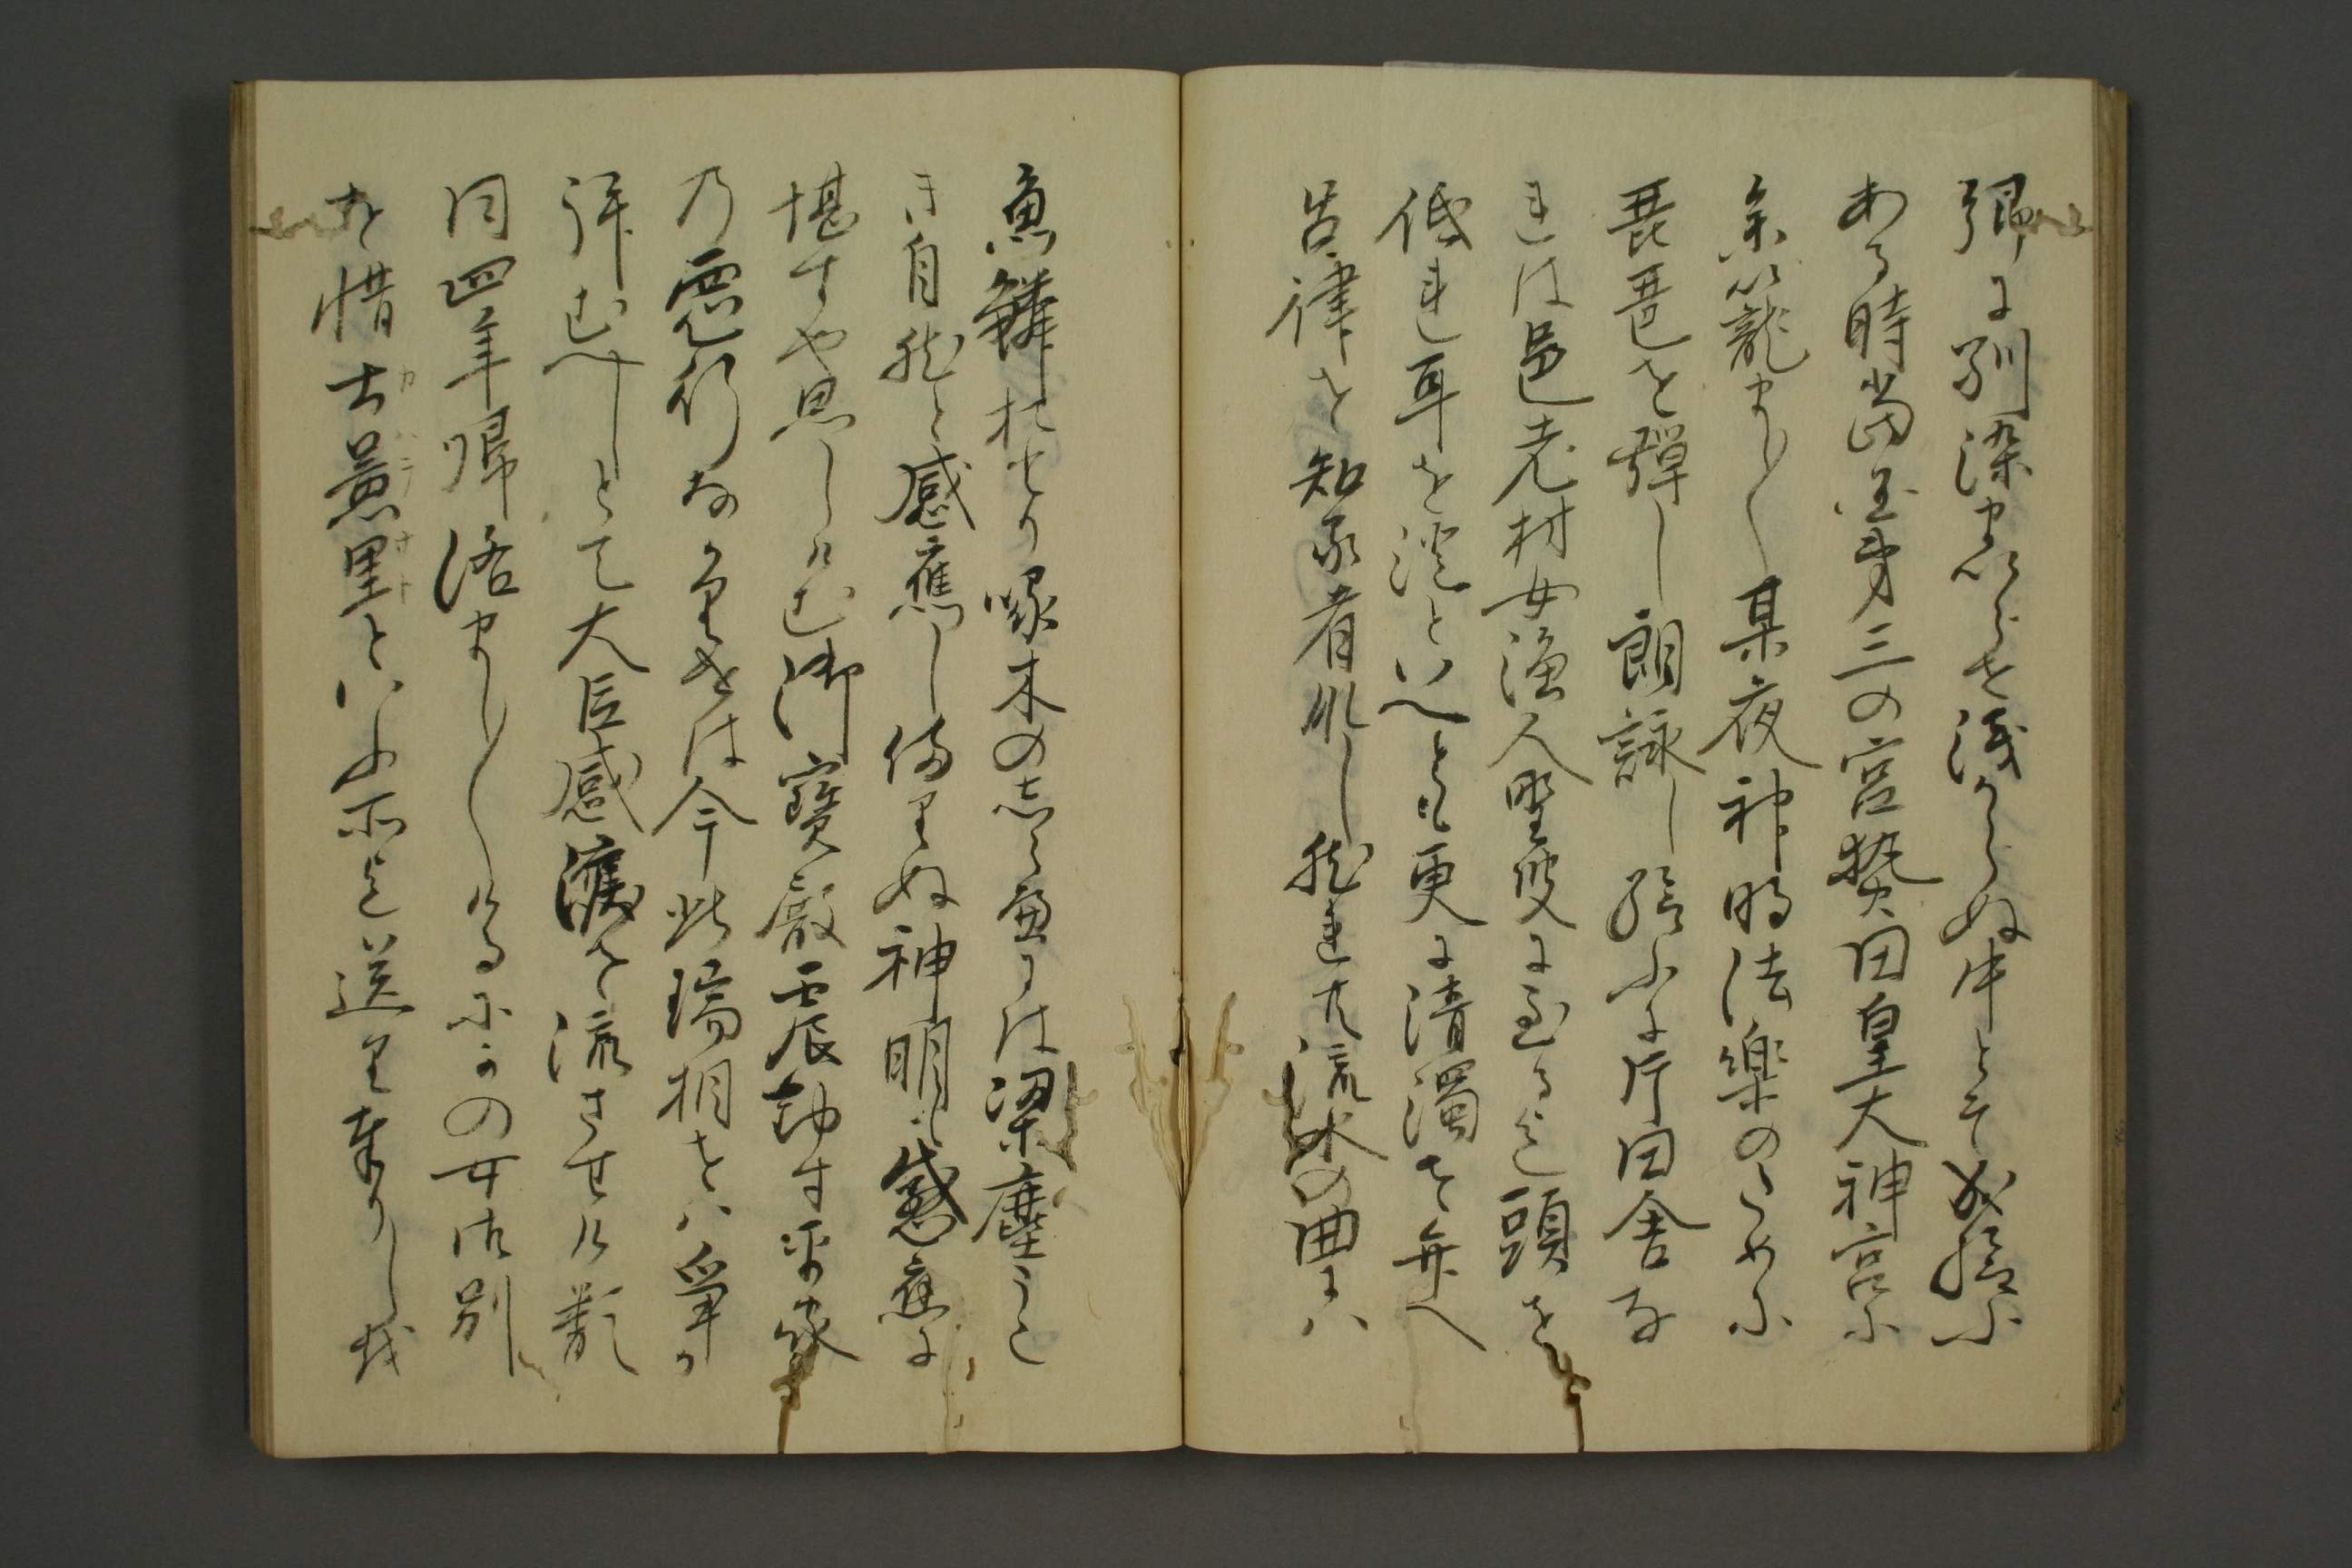 卿に馴染まいらせ浅からぬ中とそ成給ふ
ある時当国第三の宮熱田皇大神宮に
参籠まし〳〵某夜神明法楽のために
琵琶を弾し朗詠し給ふに片田舎な
れは邑老村女漁人野叟に至る迄頭を
低れ耳を澄といへとも更に清濁を弁へ
呂律を知る者なし然れ共流水の曲には
魚鱗おとり啄木のしらへには梁塵うこ
き自然と感應し侍りぬ神明も感應に
堪すや思しけむ御寶殿震動す平家
乃悪行なかりせは今此瑞相をは争か
拝むへしとて大臣感涙を流させ給
同四年帰洛まし〳〵けるにかの女御別
を惜
といふ所迄送り奉りしか